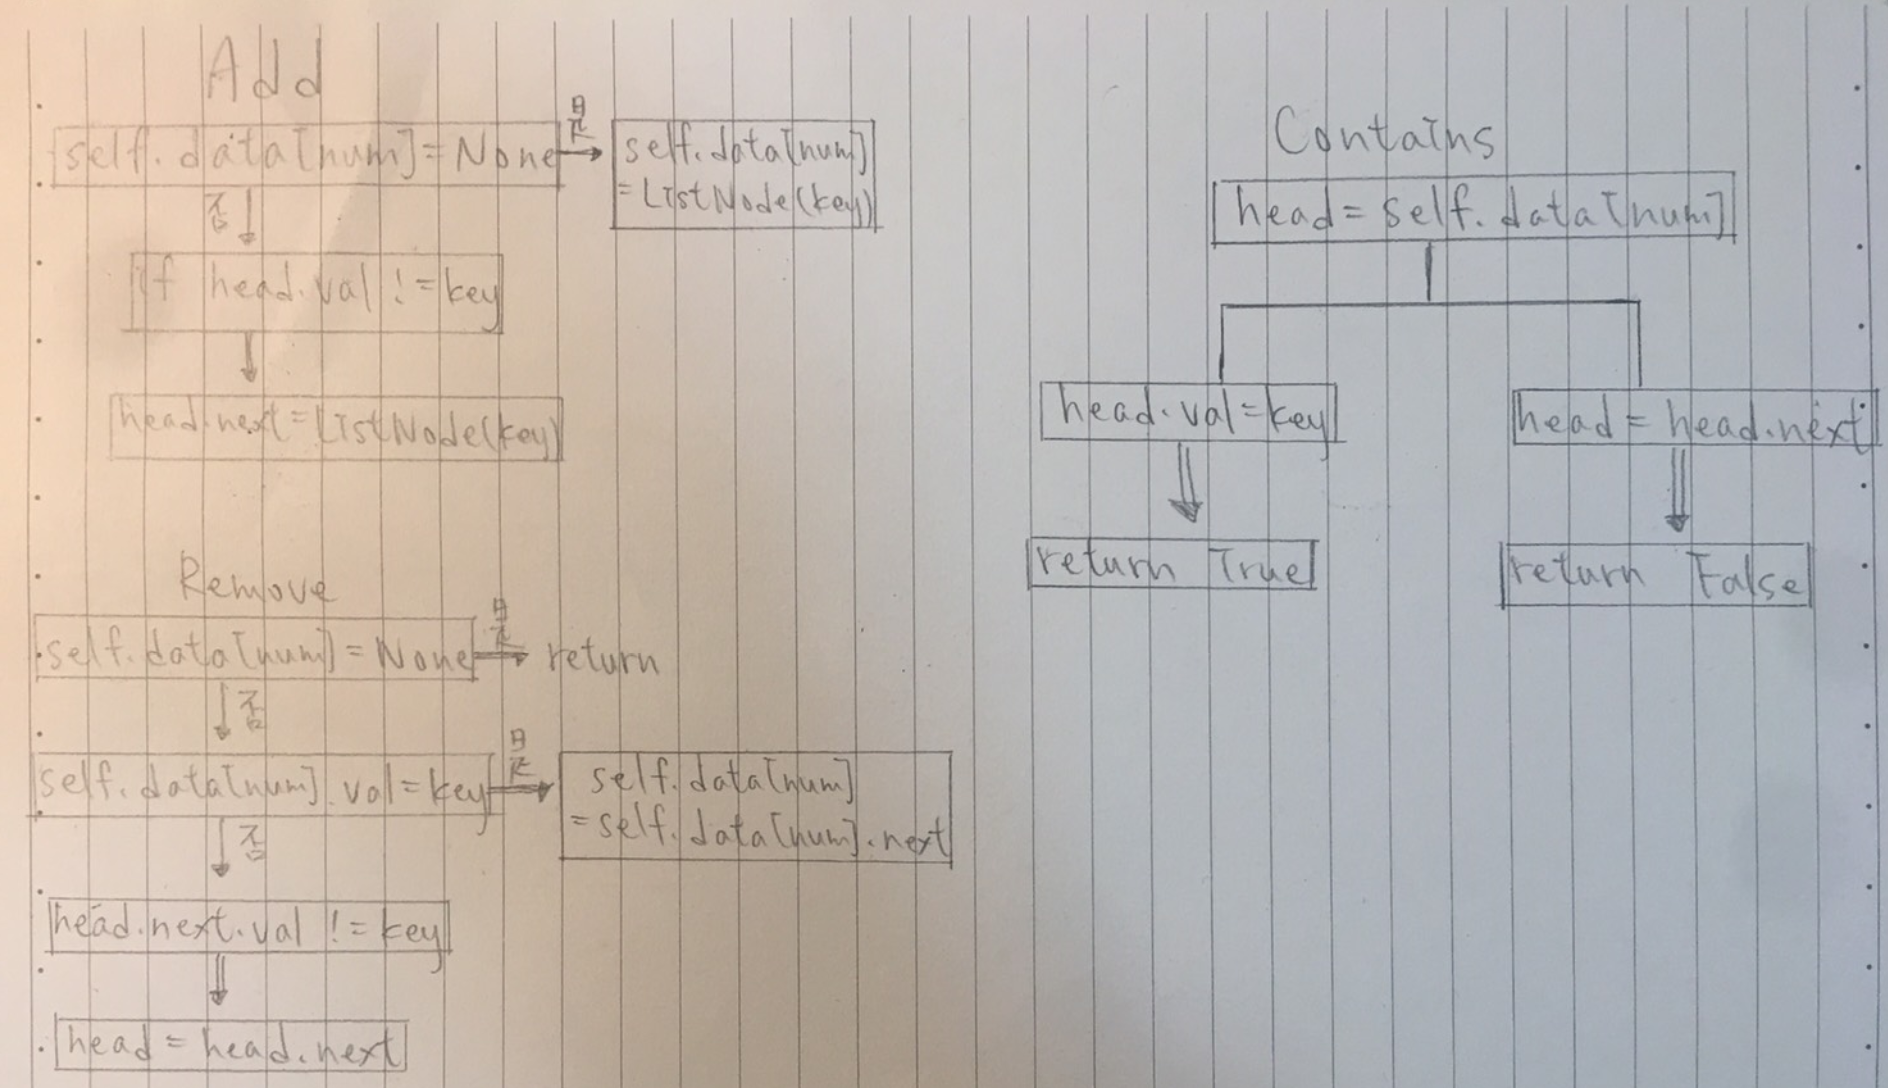 Add
self.data[num]=None
是
self.data[num]
=ListNode(key)
否
if head.val !=key
head.next=ListNode(key)
Remove
self.data[num]=None
是
return
否
self.data[num].val=key
是
self.data[num]
=self.data[num].next
否
head.next.val !=key
head=head.next
Contains
head=self.data[num]
head.val=key
head=head.next
return True
return False